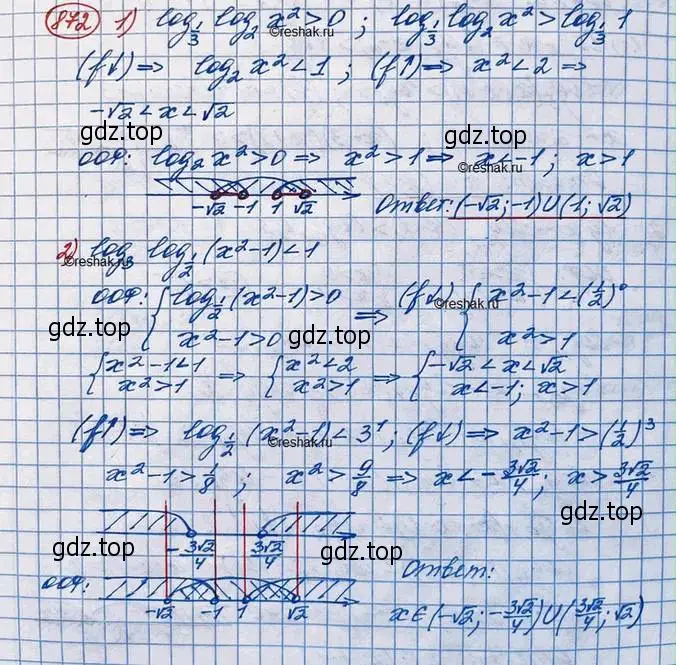 872 1) log_{1/3} log_2 x² > 0 ; log_{1/3} log_2 x² > log_{1/3} 1
©reshak.ru
(f↓) ⇒ log_2 x² < 1 ; (f↑) ⇒ x² < 2 ⇒
-√2 < x < √2
gdz.top gdz.top
ООФ: log_2 x² > 0 ⇒ x² > 1 ⇒ x < -1 ; x > 1
©reshak.ru
-√2 -1 1 √2 Ответ: (-√2; -1) U (1; √2)
2) log_3 log_{1/2} (x² - 1) < 1
©reshak.ru
ООФ: { log_{1/2} (x² - 1) > 0 ⇒ (f↓) { x² - 1 < (1/2)⁰
©reshak.ru
gdz.top gdz.top
x² - 1 > 0 x² > 1
{ x² - 1 < 1 ⇒ { x² < 2 ⇒ { -√2 < x < √2
x² > 1 x² > 1 x < -1 ; x > 1
(f↑) ⇒ log_{1/2} (x² - 1) < 3¹ ; (f↓) ⇒ x² - 1 > (1/2)³
©reshak.ru
x² - 1 > 1/8 ; x² > 9/8 ⇒ x < -3√2/4 ; x > 3√2/4
gdz.top gdz.top
-3√2/4 3√2/4
Ответ:
ООФ:
-√2 -1 1 √2 x ∈ (-√2; -3√2/4) U (3√2/4; √2)